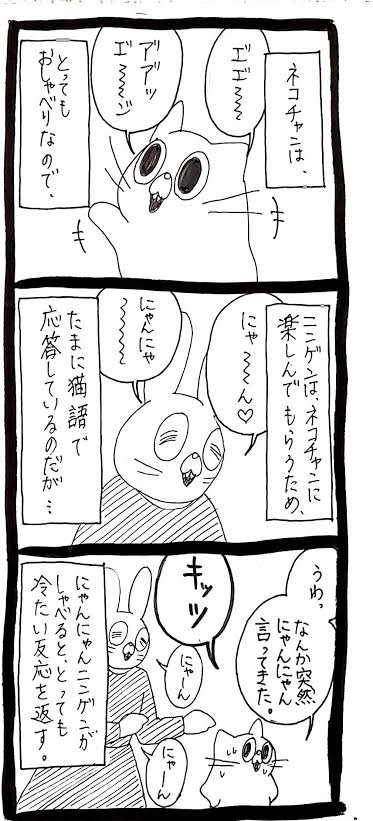 ネコチャンは、
エエ〜〜〜
アアッ
エ゛〜〜〜ン
とっても
おしゃべりなので、
ニンゲンは、ネコチャンに
楽しんでもらうため、
にゃ〜〜ん♡
にゃんにゃ
〜〜〜
たまに猫語で
応答しているのだが…
うわっ
なんか突然
にゃんにゃん
言ってきた。
キッツ
にゃーん
にゃーん
にゃんにゃんニンゲンが
しゃべると、とっても
冷たい反応を返す。